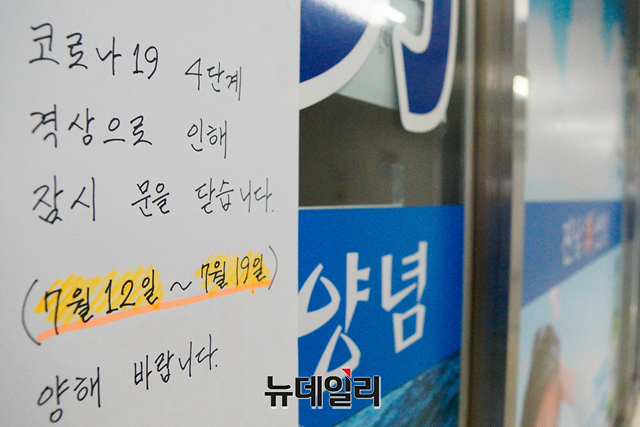 코로나19 4단계
격상으로 인해
잠시 문을 닫습니다.
(7월 12일 ~ 7월 19일)
양해 바랍니다.
양념
뉴데일리